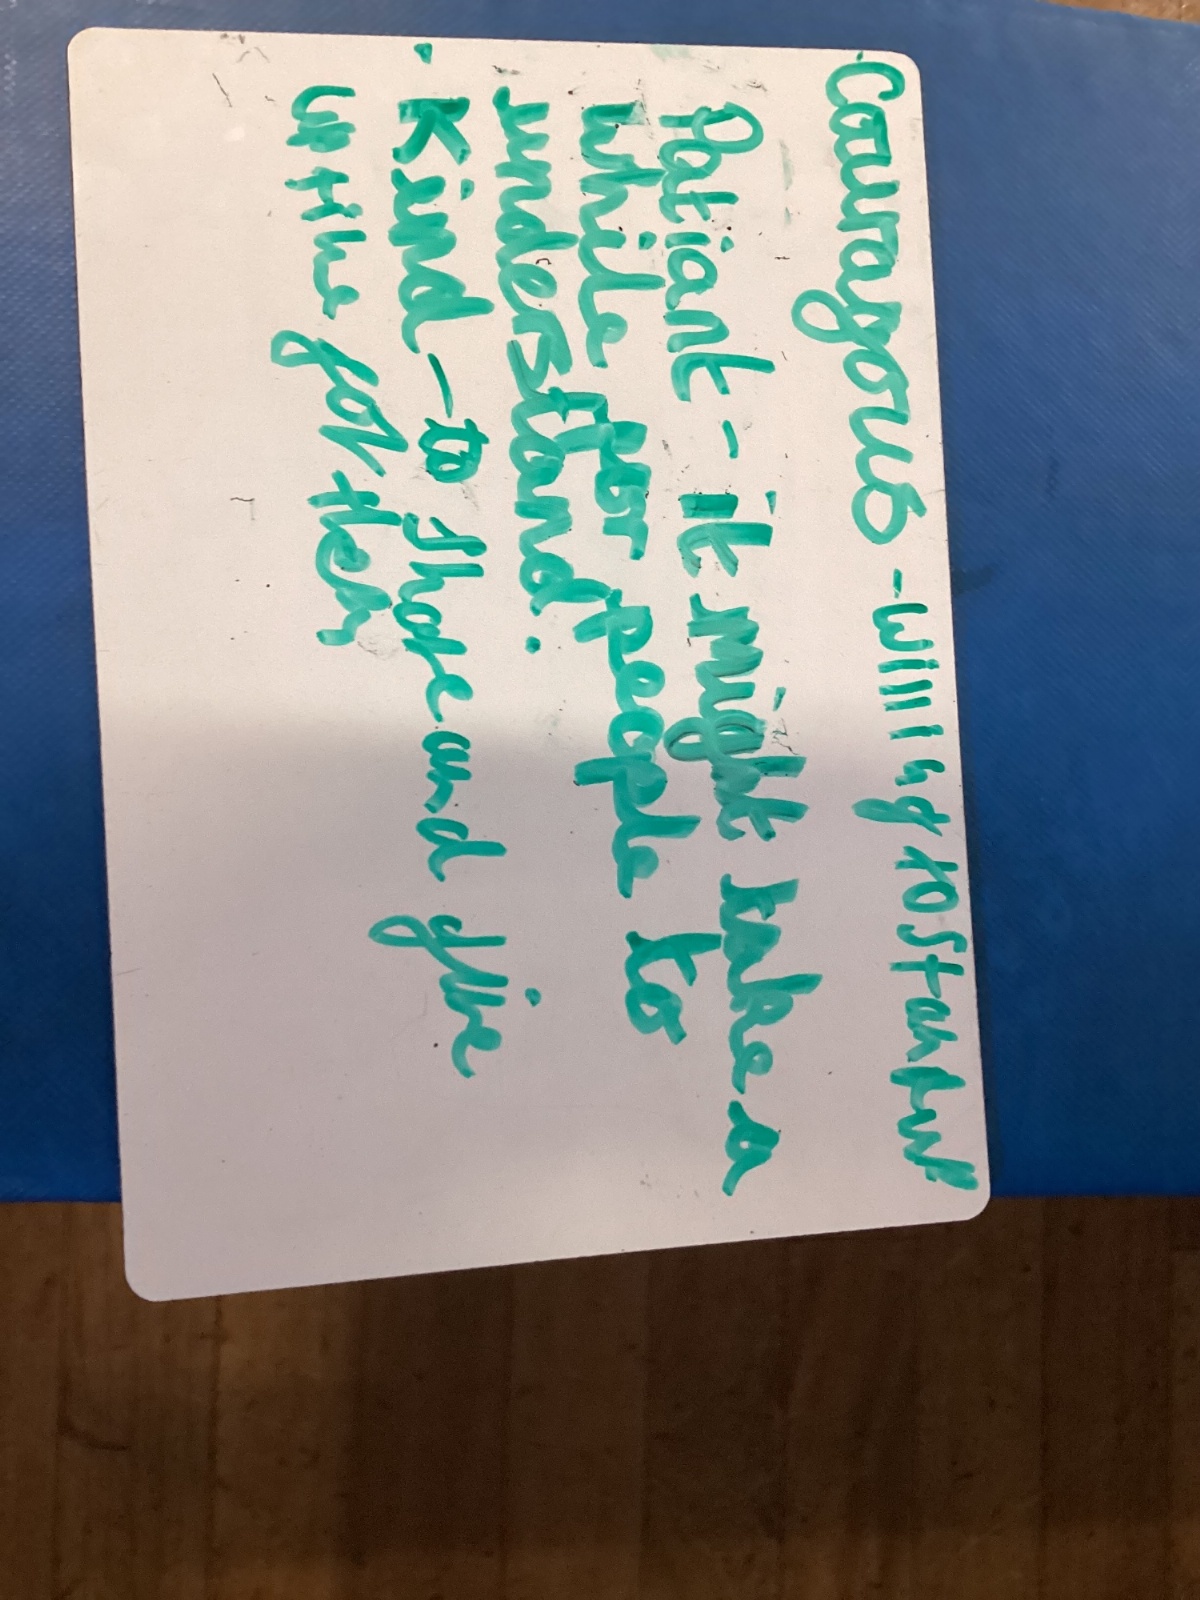 ·Couragous -willing to stand up
Patiant - it might take a
while for people to
understand.
· Kind - to share and give
up the for them